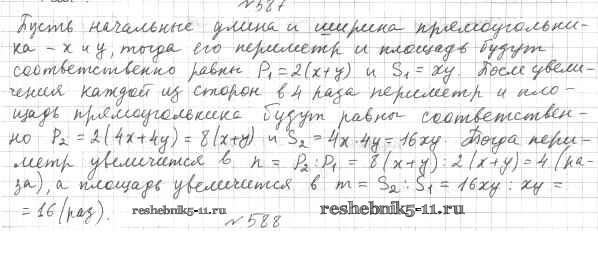 №587
Пусть начальные длина и ширина прямоугольни-
ка - x и y, тогда его периметр и площадь будут
соответственно равны P₁=2(x+y) и S₁=xy. После увели-
чения каждой из сторон в 4 раза периметр и пло-
щадь прямоугольника будут равны соответствен-
но P₂=2(4x+4y)=8(x+y) и S₂=4x·4y=16xy. Тогда пери-
метр увеличится в n=P₂:P₁=8(x+y):2(x+y)=4(ра-
за), а площадь увеличится в m=S₂:S₁=16xy:xy=
=16(раз). reshebnik5-11.ru reshebnik5-11.ru
№588